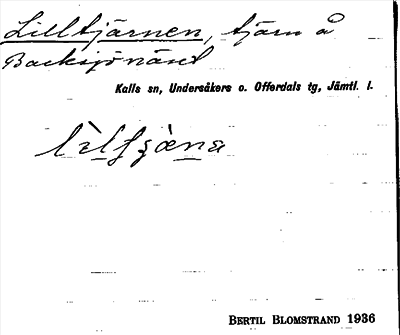 Lilltjärnen, tjärn å
Backsjönäset
Kalls sn, Undersåkers o. Offerdals tg, Jämtl. l.
BERTIL BLOMSTRAND 1936